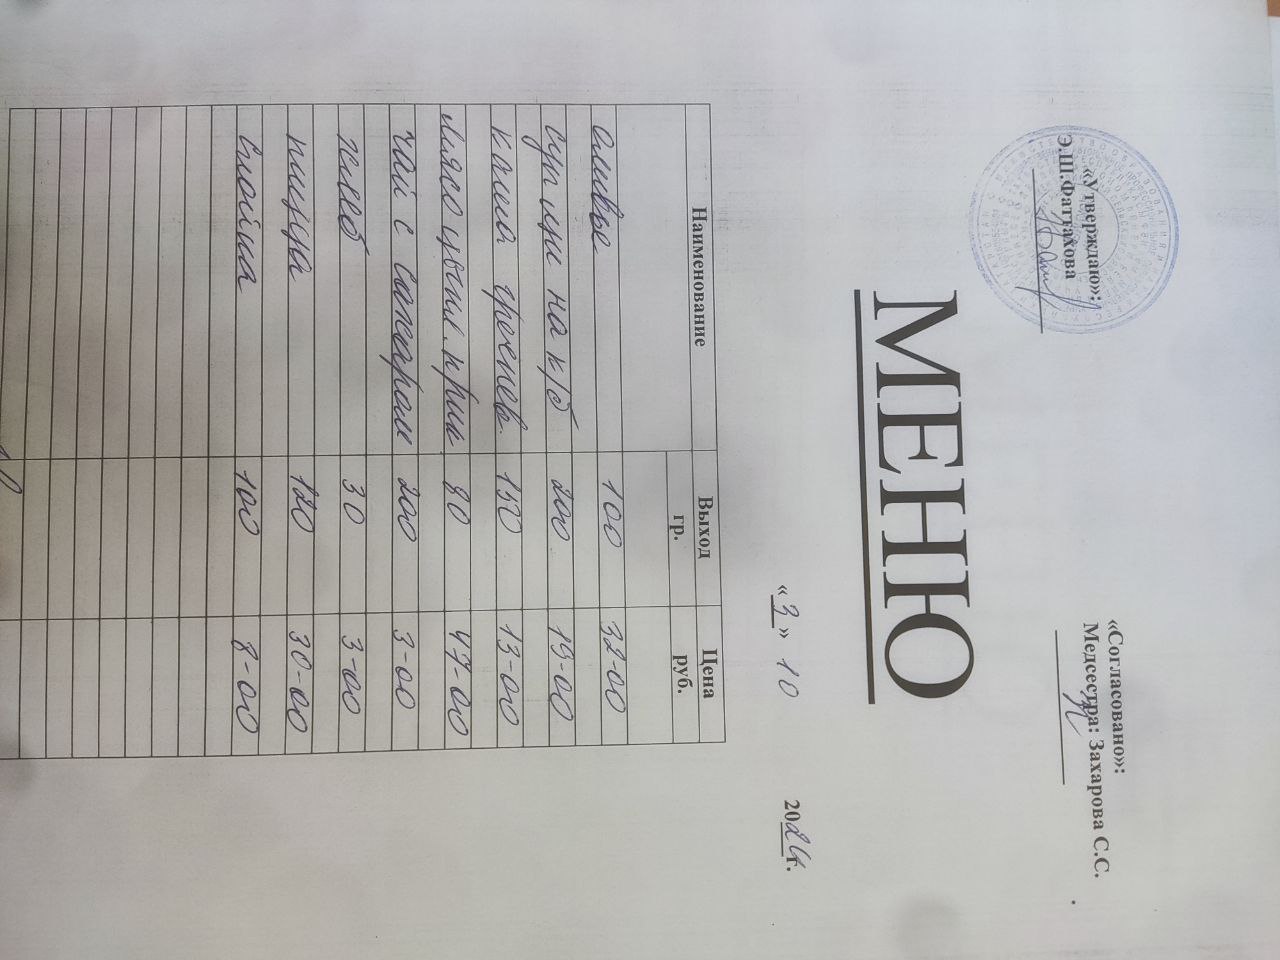 «Утверждаю»:
Э.Ш.Фаттахова
«Согласовано»:
Медсестра: Захарова С.С.
МЕНЮ
«3» 10 2024г.
Наименование Выход гр. Цена руб.
оливье 100 32-00
суп на к/б 200 19-00
каша гречнев. 150 13-00
мясо 80 47-00
чай с сахаром 200 3-00
хлеб 30 3-00
пицца 120 30-00
слойка 100 8-00